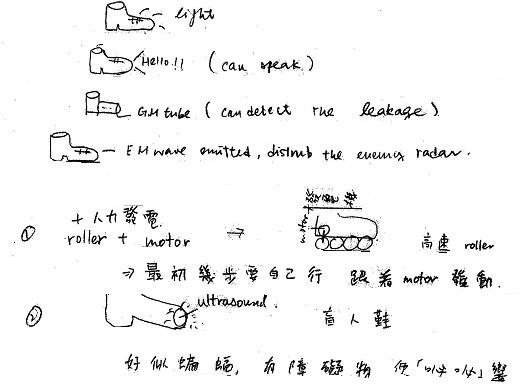 light
Hello!! (can speak)
GM tube (can detect the leakage)
EM wave emitted, disturb the enemy radar.
+ 人力發電
① roller + motor → motor 發電機 高速 roller
→ 最初幾步要自己行 跟着 motor 發動.
② ultrasound. 盲人鞋
好似蝙蝠, 有障礙物 便「吖吖」響